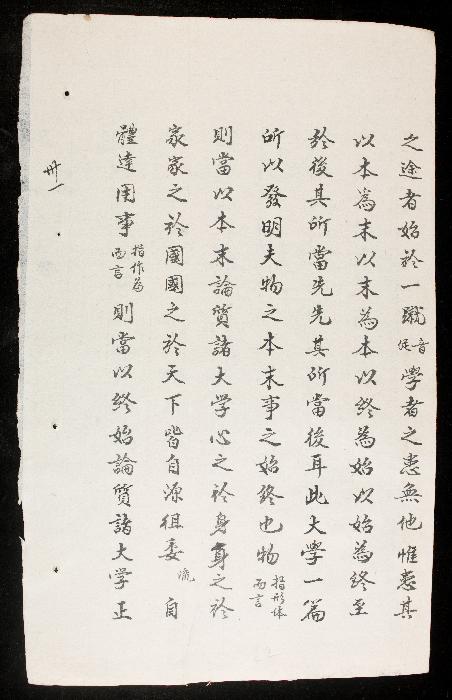 之途者始於一蹴音促學者之患無他惟患其
以本為末以末為本以終為始以始為終至
於後其所當先先其所當後耳此大學一篇
所以發明夫物之本末事之始終也物指形体而言
則當以本末論質諸大学心之於身身之於
家家之於國國之於天下皆自源徂委流自
體達用事指作為而言則當以終始論質諸大学正
卅一